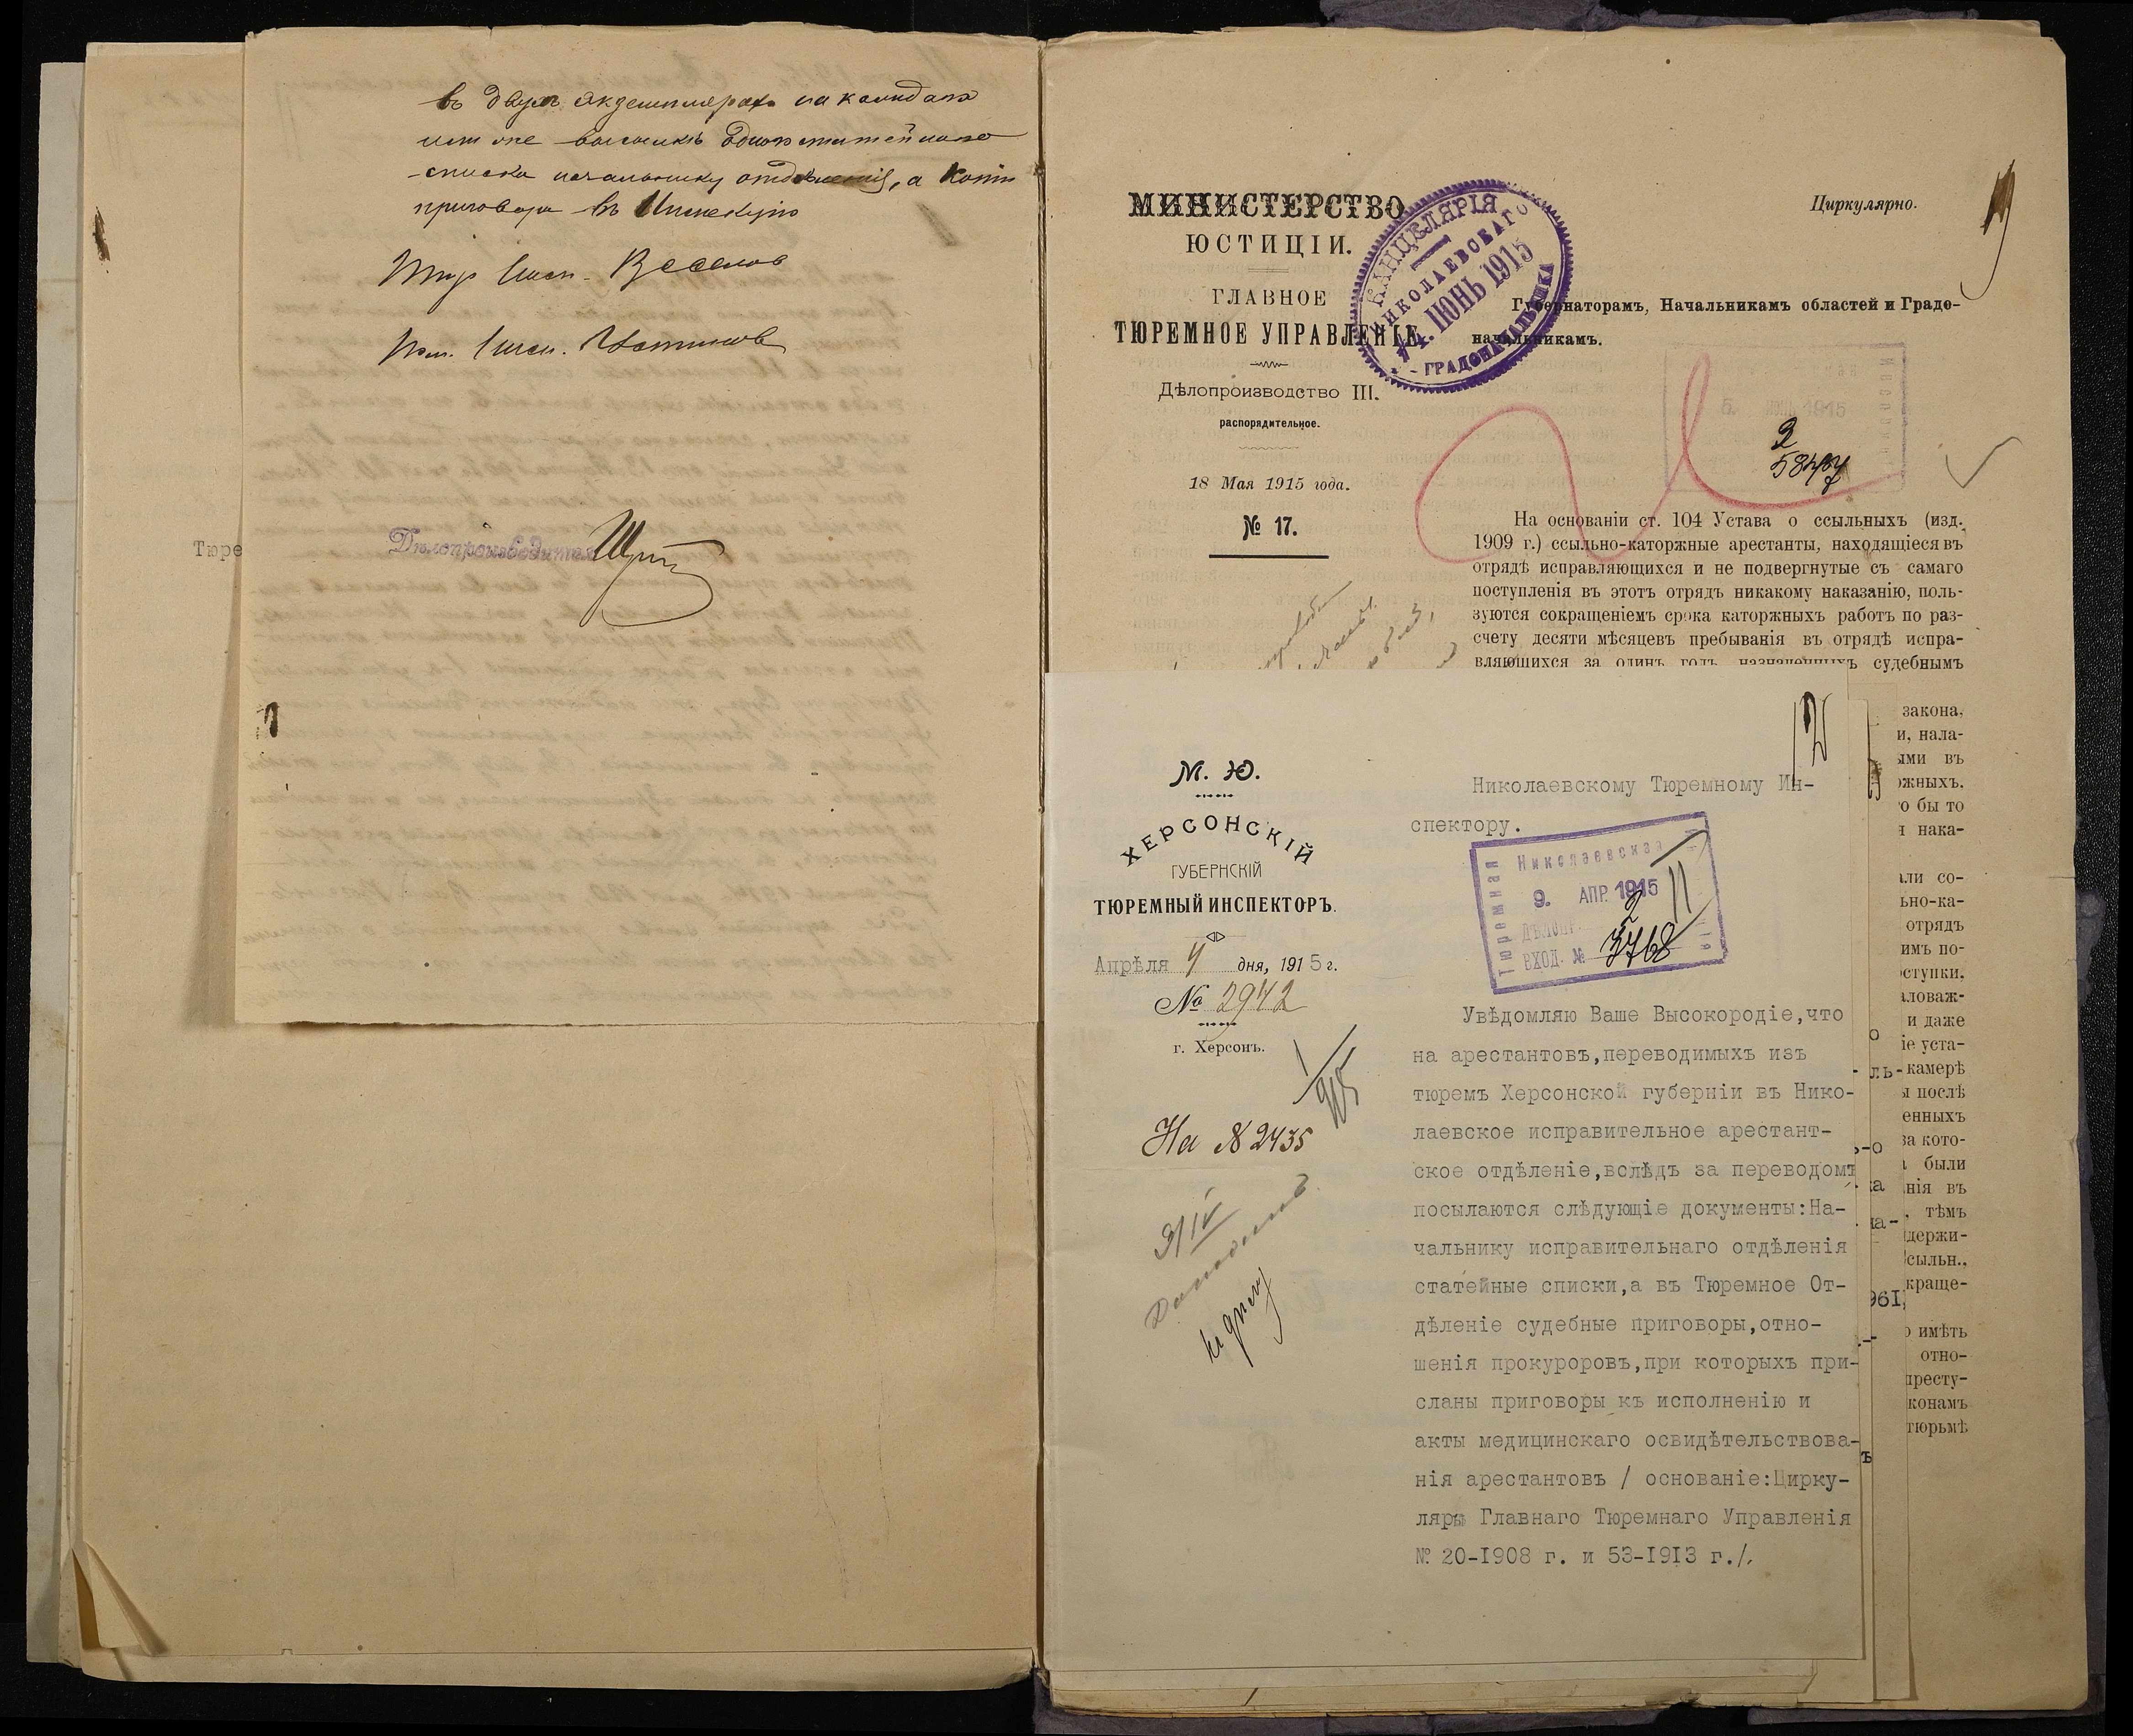 въ двухъ экземплярахъ на каждаго
или же высылкѣ одного статейнаго
списка начальнику отдѣленія, а копіи
приговора въ Инспекцію
Тюр. Инсп. Веселов
Пом. Инсп.
Дѣлопроизводитель
Тюре
МИНИСТЕРСТВО
ЮСТИЦІИ.
ГЛАВНОЕ
ТЮРЕМНОЕ УПРАВЛЕНІЕ.
Дѣлопроизводство III.
распорядительное.
18 Мая 1915 года.
№ 17.
КАНЦЕЛЯРІЯ
НИКОЛАЕВСКАГО
14. ІЮНЬ 1915
ГРАДОНАЧАЛЬНИКА
Циркулярно.
Губернаторамъ, Начальникамъ областей и Градо-
начальникамъ.
1915
2
5847
На основаніи ст. 104 Устава о ссыльныхъ (изд.
1909 г.) ссыльно-каторжные арестанты, находящіеся въ
отрядѣ исправляющихся и не подвергнутые съ самаго
поступленія въ этотъ отрядъ никакому наказанію, поль-
зуются сокращеніемъ срока каторжныхъ работъ по раз-
счету десяти мѣсяцевъ пребыванія въ отрядѣ испра-
вляющихся за одинъ годъ назначенныхъ судебнымъ
закона,
и, нала-
ыми въ
ржныхъ.
о бы то
я нака-
али со-
ьно-ка-
отрядъ
имъ по-
оступки,
аловаж-
и даже
іе уста-
камерѣ
ы послѣ
енныхъ
за кото-
были
нія въ
, тѣмъ
держи-
ссыльн.,
краще-
о имѣть
отно-
престу-
конамъ
тюрьмѣ
о
ль-
-о
ка
на-
961
ъ
М. Ю.
ХЕРСОНСКІЙ
ГУБЕРНСКІЙ
ТЮРЕМНЫЙ ИНСПЕКТОРЪ.
Апрѣля 4 дня, 1915 г.
№ 2942
г. Херсонъ.
На № 2435
9/IV
къ дѣлу
12
Николаевскому Тюремному Ин-
спектору.
Николаевская
Тюремная
9. АПР. 1915
ДѢЛОПР. 2
ВХОД. № 3768
Увѣдомляю Ваше Высокородіе,что
на арестантовъ,переводимыхъ изъ
тюремъ Херсонской губерніи въ Нико-
лаевское исправительное арестант-
ское отдѣленіе,вслѣдъ за переводомъ
посылаются слѣдующіе документы:На-
чальнику исправительнаго отдѣленія
статейные списки,а въ Тюремное От-
дѣленіе судебные приговоры,отно-
шенія прокуроровъ,при которыхъ при-
сланы приговоры къ исполненію и
акты медицинскаго освидѣтельствова-
нія арестантовъ / основаніе:Цирку-
ляры Главнаго Тюремнаго Управленія
№ 20-1908 г. и 53-1913 г./.